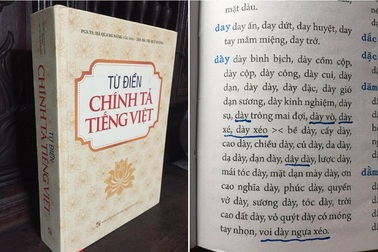 TỪ ĐIỂN
CHÍNH TẢ
TIẾNG VIỆT
TỪ ĐIỂN
CHÍNH TẢ
TIẾNG VIỆT
mặt dàn.
day day ấn, day dứt, day huyệt, day
tay mắm miệng, day trở.
dày dày bình bịch, dày cồm cộp,
dày cộp, dày công, dày cui, dày
dạn, dày dày, dày đặc, dày gió
dạn sương, dày kinh nghiệm, dày
sụ, dày trông mai đợi, dày vò, dày
xé, dày xéo >< bề dày, cấy dày,
cao dày, chiều dày, củ dày, da dày,
dạ dày, dạn dày, dày dày, lược dày,
mái tóc dày, mặt dạn mày dày, ơn
cao nghĩa dày, phúc dày, quyển
vở dày, sương dày, tóc dày, trời
cao đất dày, vỏ quýt dày có móng
tay nhọn, voi dày ngựa xéo.